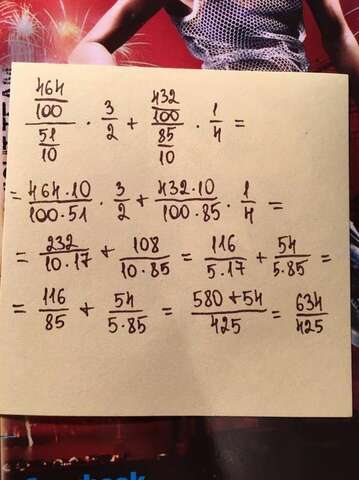 464/100 / 51/10 · 3/2 + 432/100 / 85/10 · 1/4 =
= 464·10/100·51 · 3/2 + 432·10/100·85 · 1/4 =
= 232/10·17 + 108/10·85 = 116/5·17 + 54/5·85 =
= 116/85 + 54/5·85 = 580+54/425 = 634/425